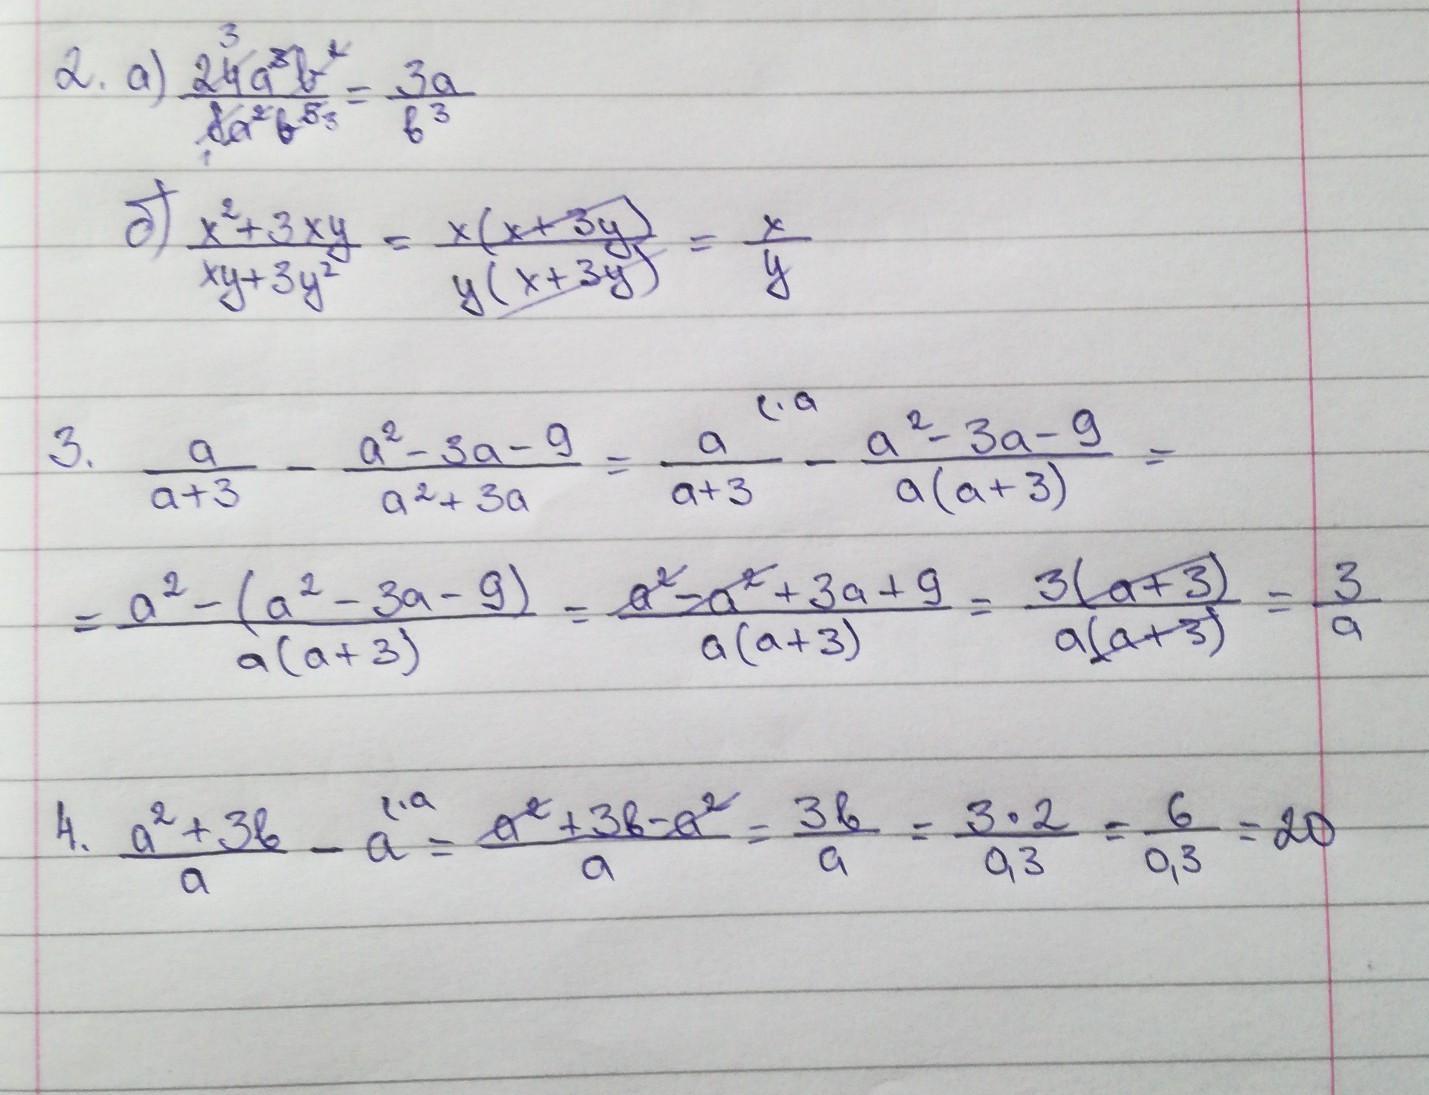 2. а) 24a³b²/8a²b⁵ = 3a/b³
б) x²+3xy/xy+3y² = x(x+3y)/y(x+3y) = x/y
3. a/a+3 - a²-3a-9/a²+3a = a/a+3 ·a - a²-3a-9/a(a+3) =
= a²-(a²-3a-9)/a(a+3) = a²-a²+3a+9/a(a+3) = 3(a+3)/a(a+3) = 3/a
4. a²+3b/a - a ·a = a²+3b-a²/a = 3b/a = 3·2/0,3 = 6/0,3 = 20